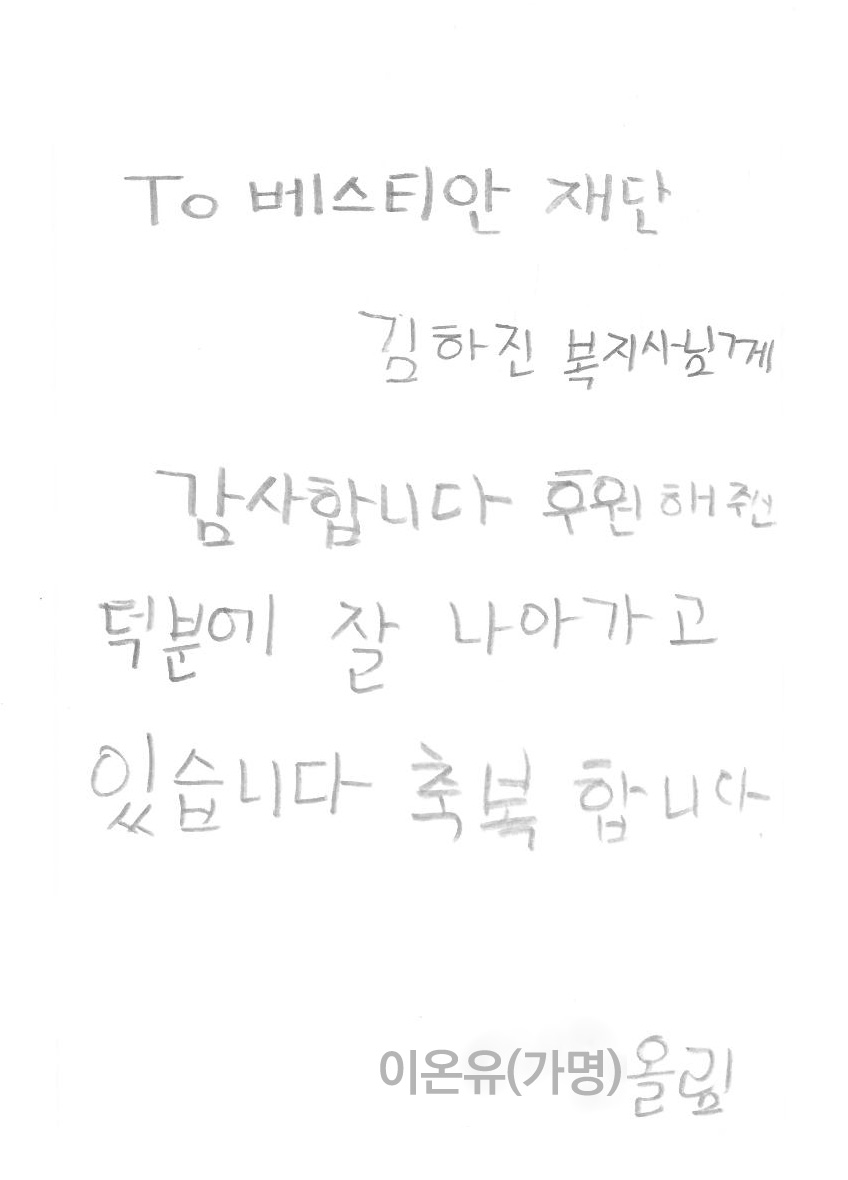 To 베스티안 재단
김하진 복지사님께
감사합니다 후원 해주신
턱분에 잘 나아가고
있습니다 축복 합니다.
이온유(가명)올림